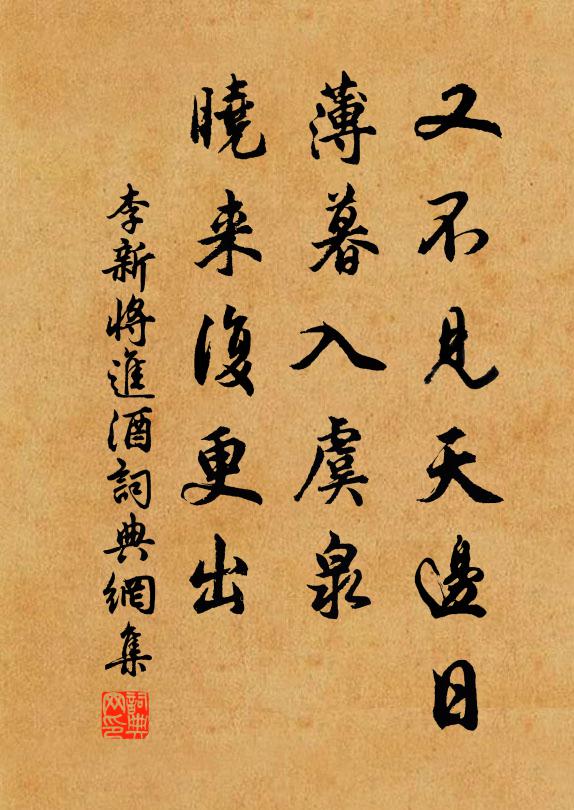 又不见天邊日
薄暮入虞泉
曉来復更出
李新將進酒詞典網集
詞典网印